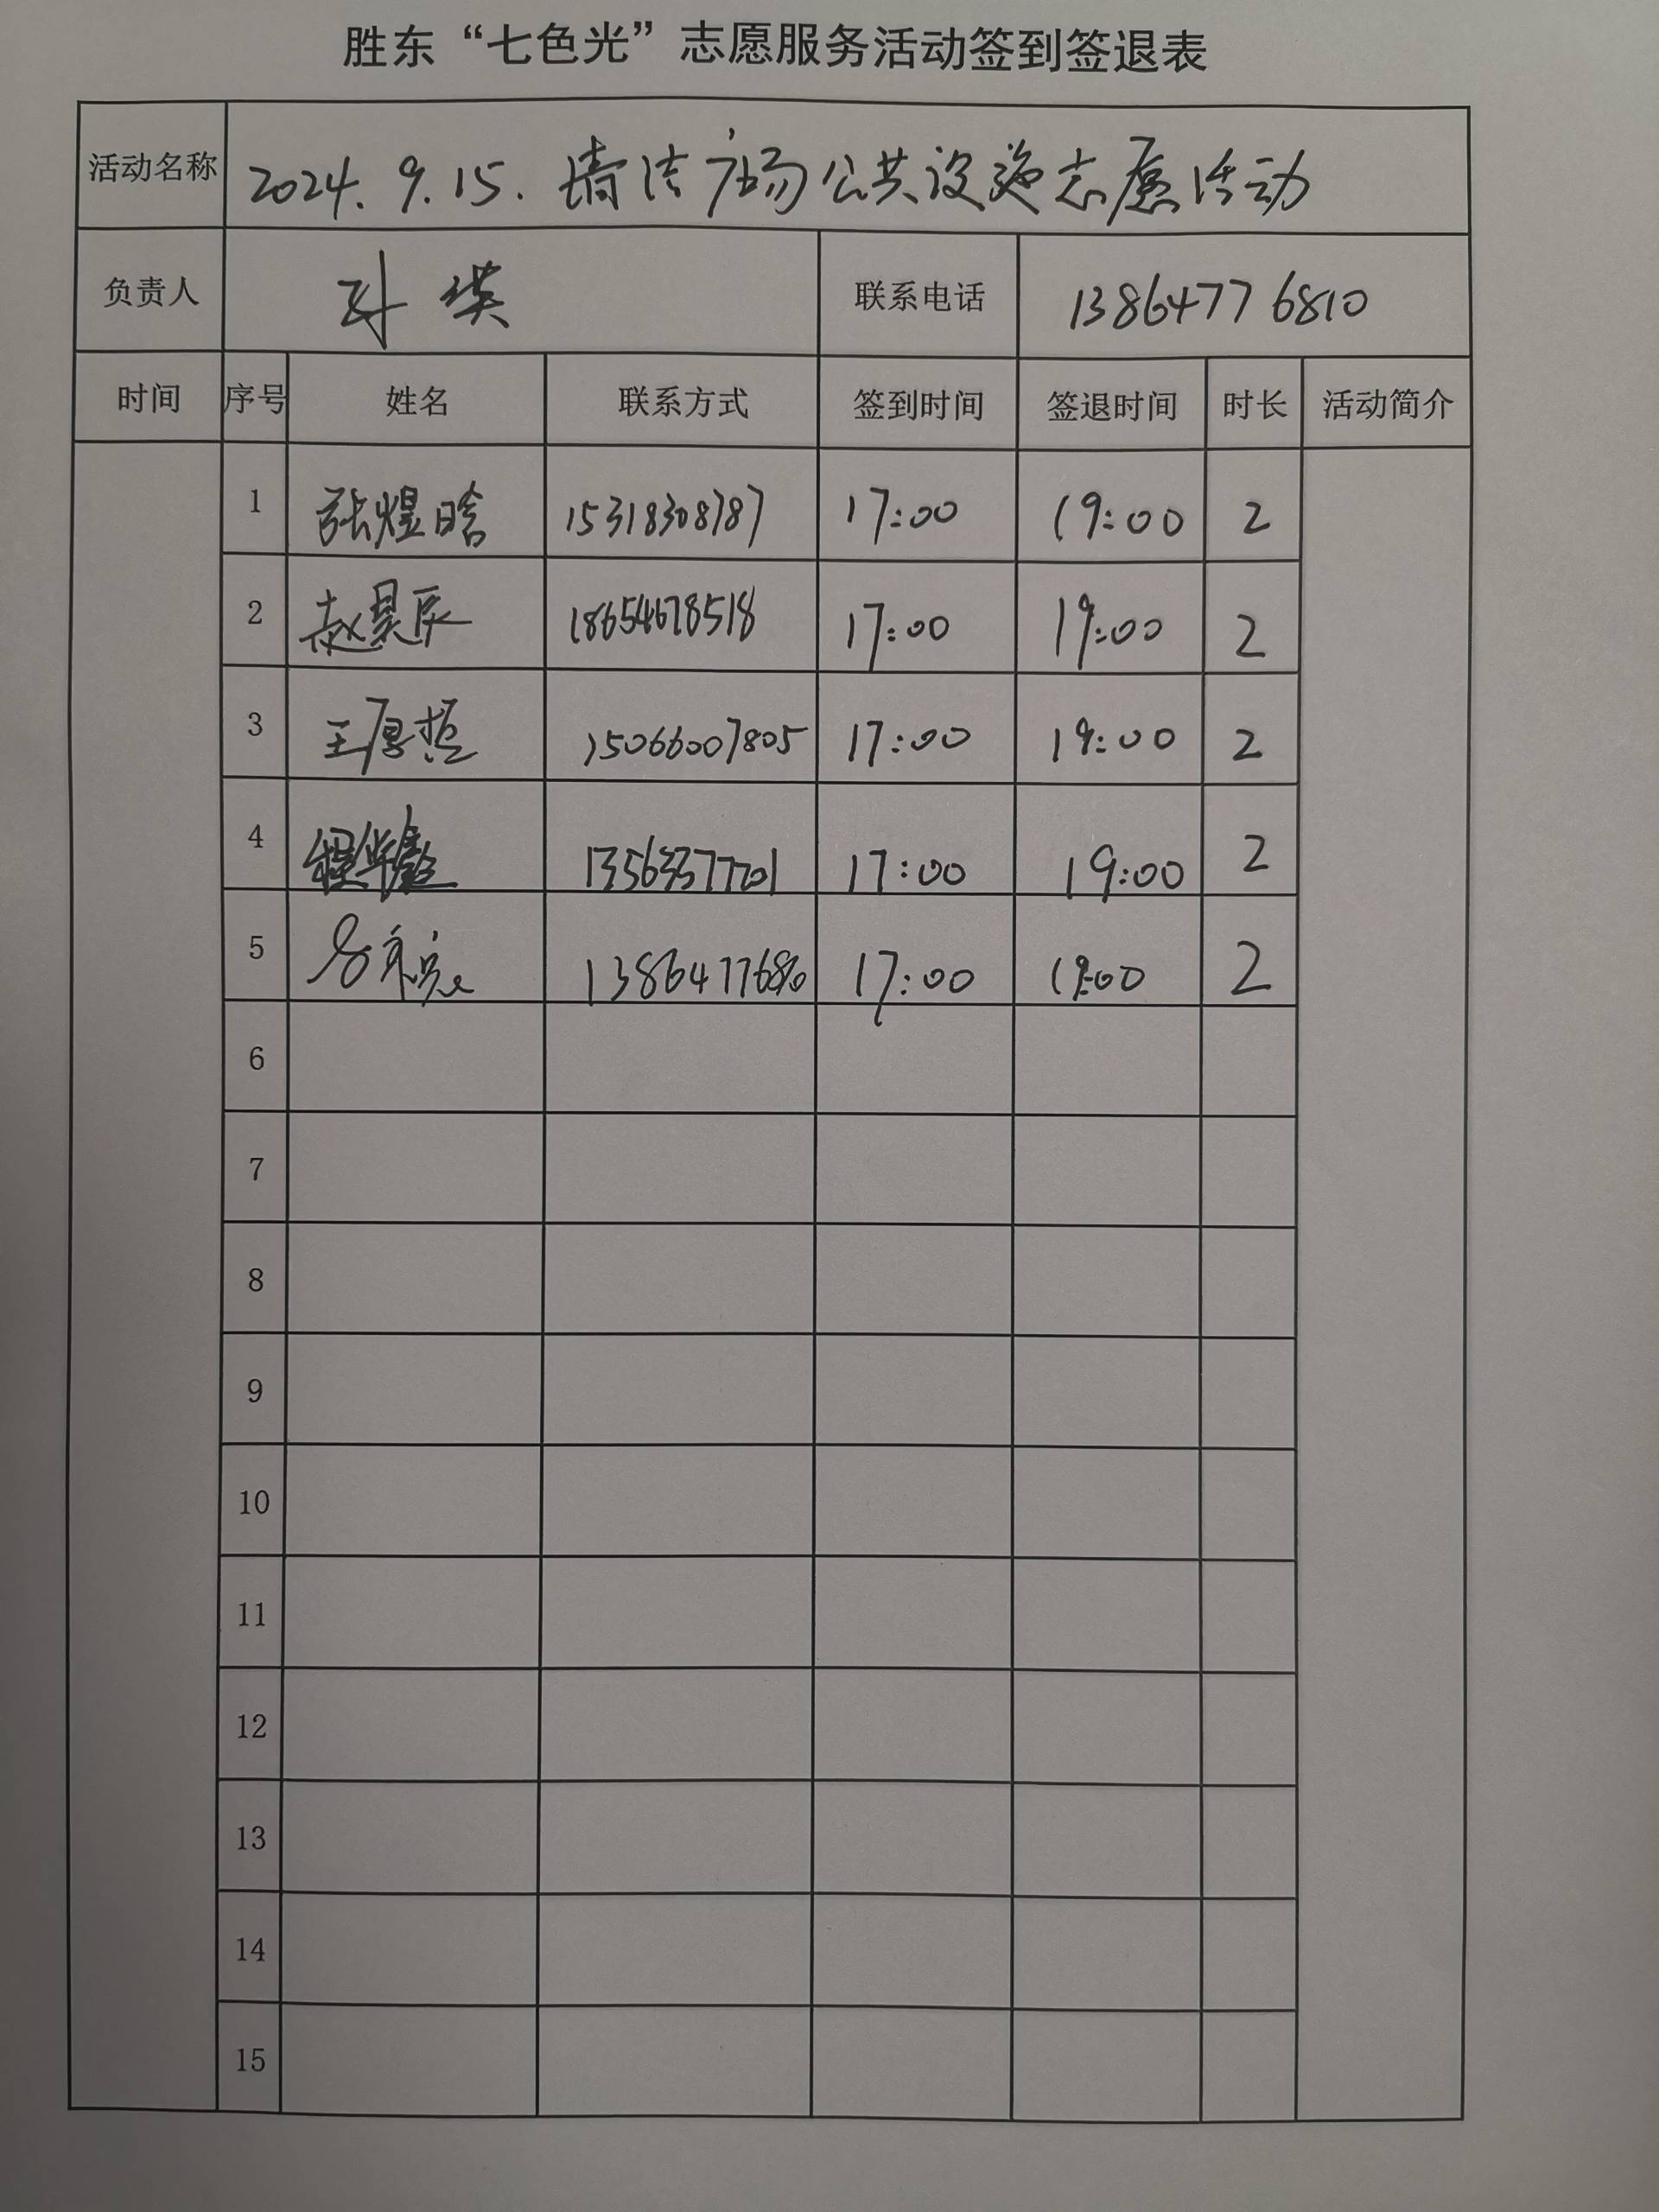 胜东“七色光”志愿服务活动签到签退表
活动名称 2024.9.15.清洁广场公共设施志愿活动
负责人 孙 联系电话 13864776810
时间 序号 姓名 联系方式 签到时间 签退时间 时长 活动简介
1 张煜晗 15318308787 17:00 19:00 2
2 赵昊辰 18654678518 17:00 19:00 2
3 王厚哲 15066007805 17:00 19:00 2
4 17:00 19:00 2
5 17:00 19:00 2
6
7
8
9
10
11
12
13
14
15